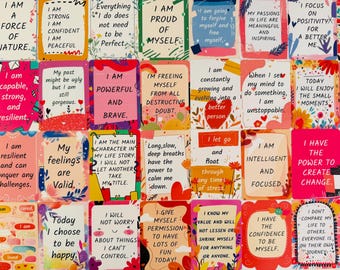 I AM
A FORCE
OF
NATURE.
I AM
STRONG
I AM
CONFIDENT
I AM
PEACEFUL
Everything
I do
does not
need to
be
Perfect.
I AM
PROUD
OF
MYSELF.
I am going
to forgive
myself and
free
myself.
MY
PASSIONS
IN LIFE ARE
MEANINGFUL
AND
INSPIRING.
I CAN
FOCUS
ON
POSITIVITY
FOR A
BETTER
ME
I am
capable,
strong,
and
resilient.
My past
might be ugly
but I am
still
gorgeous.
I AM
POWERFUL
AND
BRAVE.
I'M FREEING
MYSELF
FROM ALL
DESTRUCTIVE
DOUBT
I am
constantly
growing and
becoming a better
person
When I set
my mind to
do something,
I am
unstoppable.
TODAY
I WILL ENJOY
THE SMALL
MOMENTS.
I am
resilient
and can
conquer any
challenges.
My
feelings
are
Valid.
I AM THE MAIN
CHARACTER IN
MY LIFE STORY
I WILL NOT
LET ANOTHER
TAKE
MY TITLE.
Long, slow,
deep breaths
have the
power to
calm me
down.
I let go
and
float
through
my time
of stress.
I AM
INTELLIGENT
AND
FOCUSED.
I HAVE
THE POWER
TO CREATE
CHANGE.
Today
choose to
be
happy.
I WILL
NOT WORRY
ABOUT
THINGS I
CAN'T
CONTROL.
I GIVE
MYSELF
PERMISSION
TO HAVE
LOTS OF
FUN
TODAY!
I KNOW MY
VALUE AND WILL
NOT LESSEN OR
SHRINK MYSELF
FOR ANYTHING
OR ANYONE.
I HAVE
THE
CONFIDENCE
TO BE
MYSELF.
I DON'T
COMPARE MY
LIFE TO
OTHERS.
EVERYONE IS
ON THEIR OWN
JOURNEY.